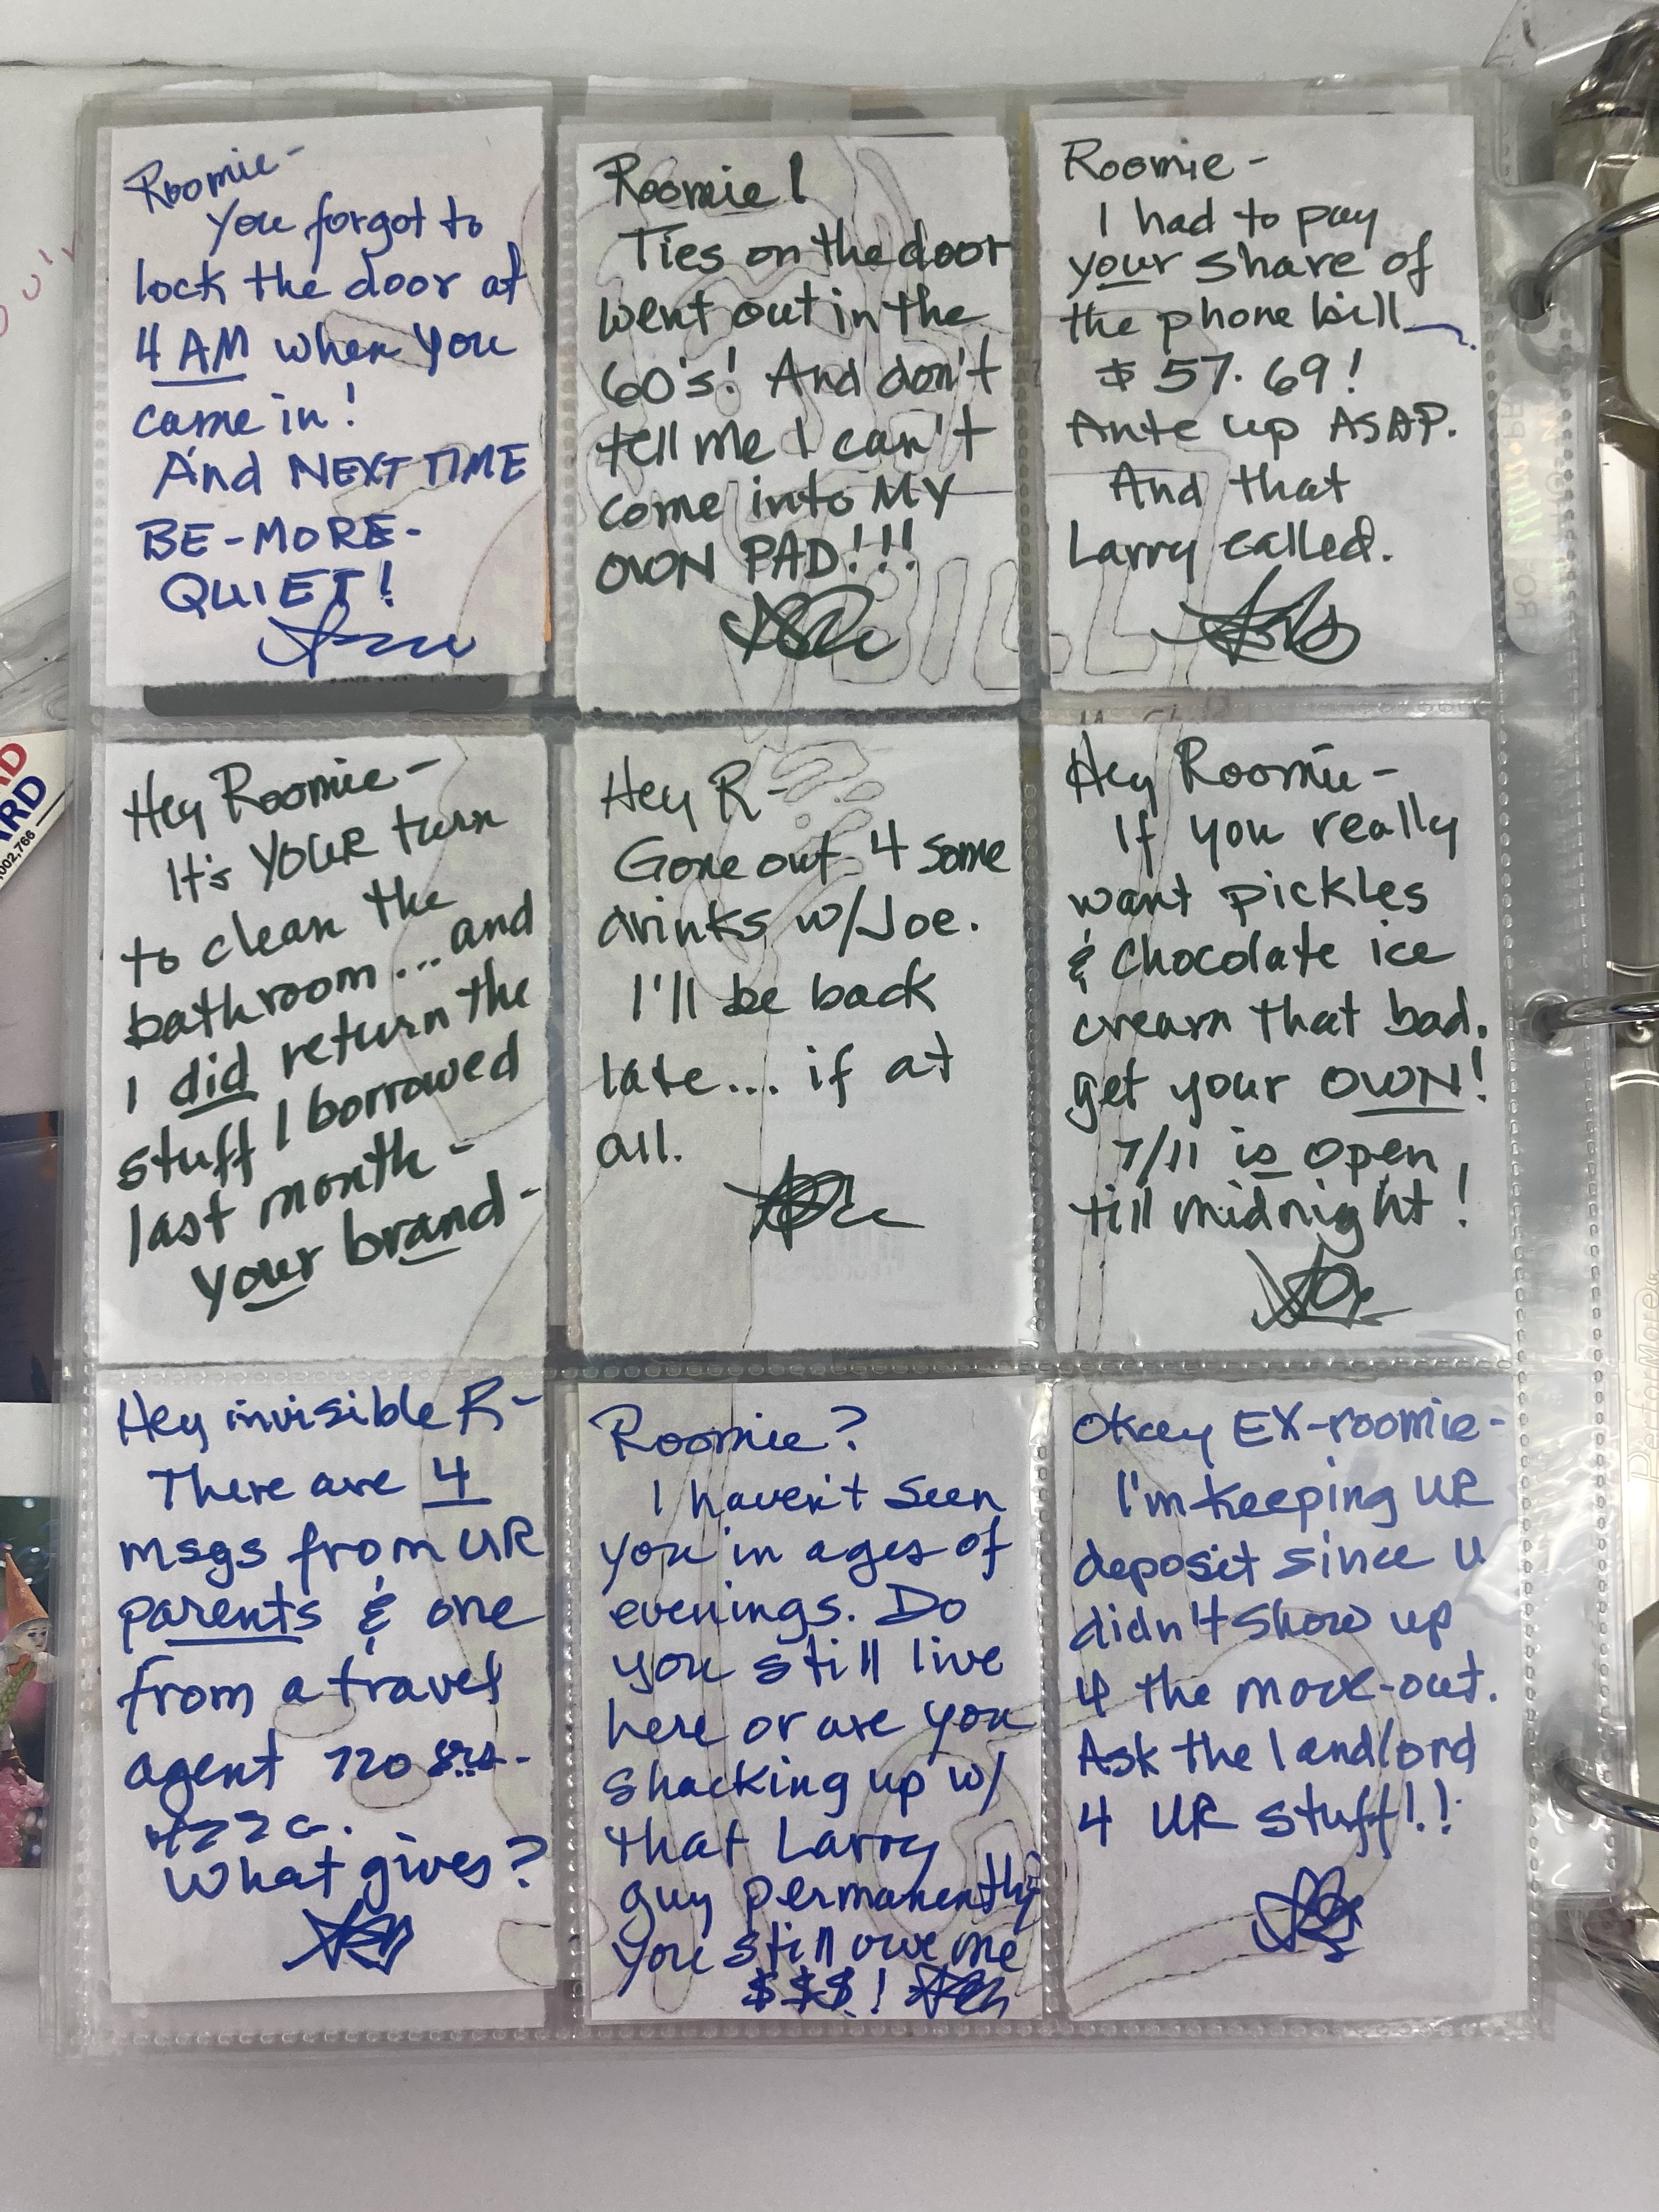 Roomie-
You forgot to
lock the door at
4 AM when you
came in!
And NEXT TIME
BE-MORE-
QUIET!
Roomie!
Ties on the door
went out in the
60's! And don't
tell me I can't
come into MY
OWN PAD!!!
Roomie-
I had to pay
your share of
the phone bill
$57.69!
Ante up ASAP.
And that
Larry called.
Hey Roomie-
It's YOUR turn
to clean the
bathroom...and
I did return the
stuff I borrowed
last month-
your brand-
Hey R-
Gone out 4 some
drinks w/Joe.
I'll be back
late... if at
all.
Hey Roomie-
If you really
want pickles
& chocolate ice
cream that bad,
get your OWN!
7/11 is open
till midnight!
Hey invisible R-
There are 4
msgs from UR
parents & one
from a travel
agent
What gives?
Roomie?
I haven't seen
you in ages of
evenings. Do
you still live
here or are you
shacking up w/
that Larry
guy permanently
You still owe me
$$$!
Okay EX-roomie-
I'm keeping UR
deposit since U
didn't show up
4 the move-out.
Ask the landlord
4 UR stuff!!
BILL
RD
002,766
PerforMore